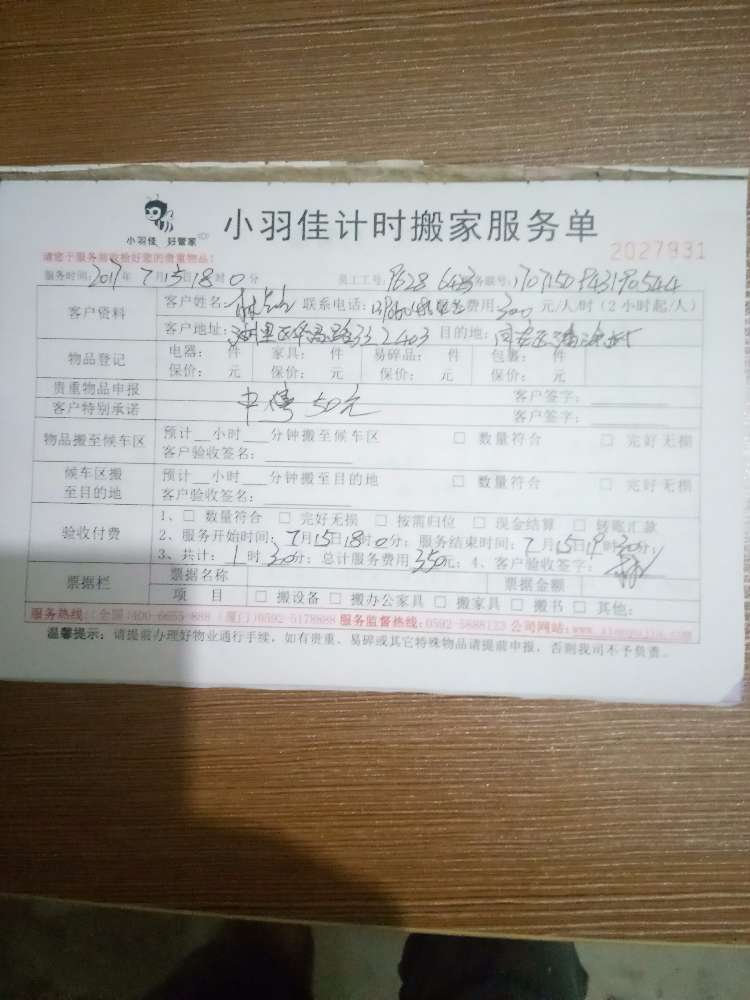 小羽佳 好管家
小羽佳计时搬家服务单
2027931
请您于服务前收检好您的贵重物品!
服务时间: 2017年7月15日18时0分 员工工号: 9628 643 服务联号: 1707150943190544
客户资料
客户姓名: 林 联系电话: 服务费用: 300 元/人/时(2小时起/人)
客户地址: 湖里区 332403 目的地: 同安区
物品登记
电器: 件 家具: 件 易碎品: 件 包裹: 件
保价: 元 保价: 元 保价: 元 保价: 元
贵重物品申报 客户签字:
客户特别承诺 50元 客户签字:
物品搬至候车区
预计__小时___分钟搬至候车区 □ 数量符合 □ 完好无损
客户验收签名:
候车区搬至目的地
预计__小时___分钟搬至目的地 □ 数量符合 □ 完好无损
客户验收签名:
验收付费
1、□ 数量符合 □ 完好无损 □ 按需归位 □ 现金结算 □ 转账汇款
2、服务开始时间: 7月15日18时0分; 服务结束时间: 7月15日19时30分;
3、共计: 1时30分; 总计服务费用350元; 4、客户验收签字:
票据栏
票据名称 票据金额
项 目 □ 搬设备 □ 搬办公家具 □ 搬家具 □ 搬书 □ 其他:
服务热线:(全国)400-6655-888 (厦门)0592-5178888 服务监督热线:0592-5888133 公司网站:www.xiaoyujia.com
温馨提示: 请提前办理好物业通行手续, 如有贵重、易碎或其它特殊物品请提前申报, 否则我司不予负责。